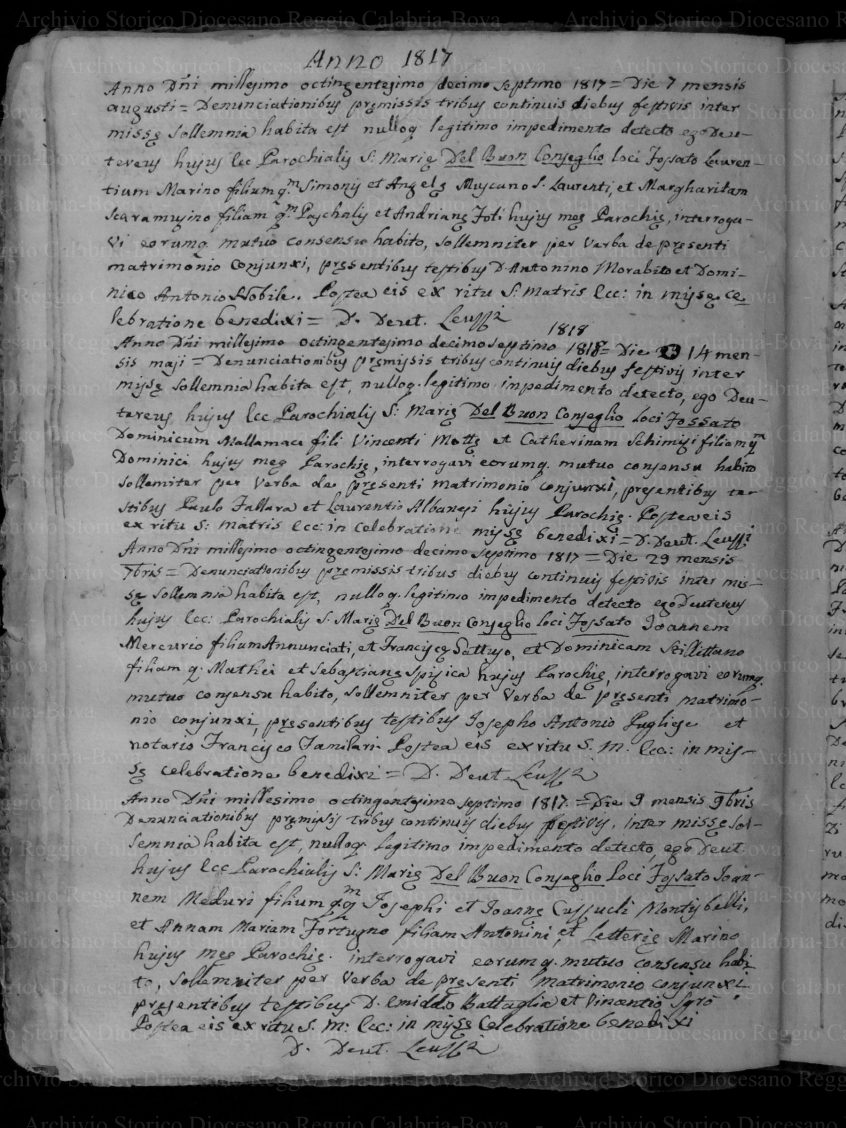 Anno 1817
Anno Dñi millesimo octingentesimo decimo septimo 1817 = Die 7 mensis
augusti = Denunciationibus pręmissis tribus continuis diebus festivis inter
missę sollemnia habita est nulloq. legitimo impedimento detecto ego Deu-
tereus hujus Ecc Parochialis S: Marię Del Buon Conseglio loci Fossato Lauren-
tium Marino filium qm Simonis et Angelę Muscuno S. Laurenti, et Margharitam
Scaramuzino filiam qm Paschalis et Andrianę Foti hujus meę Parochię, interroga-
vi eorumq. mutuo consensu habito, sollemniter per verba de pręsenti
matrimonio conjunxi, pręsentibus testibus D. Antonino Morabito et Domi-
nico Antonio Nobile. Postea eis ex ritu S: Matris Ecc: in missę ce
lebratione benedixi = D. Deut. Leuzzi
1818
Anno Dñi millesimo octingentesimo decimo septimo 1818 = Die 14 men-
sis maji = Denunciationibus pręmissis tribus continuis diebus festivis inter
missę sollemnia habita est, nulloq. legitimo impedimento detecto, ego Deu-
tereus hujus Ecc Parochialis S: Marię Del Buon Conseglio Loci Fossato
Dominicum Mallamaci fili Vincenti Mottę et Catherinam Schimizi filiam qm
Dominici hujus meę Parochię, interrogavi eorumq. mutuo consensu habito
sollemiter per verba de pręsenti matrimonio conjunxi, presentibus te-
stibus Paulo Fallara et Laurentio Albanesi hujus Parochię. Postea eis
ex ritu S: Matris Ecc: in celebratione missę benedixi = D. Deut. Leuzzi
Anno Dñi millesimo octingentesimo decimo septimo 1817 = Die 29 mensis
7bris = Denunciationibus pręmissis tribus diebus continuis festivis inter mis-
sę sollemnia habita est, nulloq. legitimo impedimento detecto ego Deutereus
hujus Ecc: Parochialis S: Marię Del Buon Conseglio loci Fossato Joannem
Mercurio filium Annunciati, et Franciscę Sattuso, et Dominicam Scillittano
filiam q. Mathei et Sebastianę Spisica hujus Parochię, interrogavi eorumq.
mutuo consensu habito, sollemniter per verba de pręsenti matrimo-
nio conjunxi, pręsentibus testibus Josepho Antonio Pugliese et
notario Francisco Familari Postea eis ex ritu S. M: Ecc: in mis-
sę celebratione benedixi = D. Deut. Leuzzi
Anno Dñi millesimo octingentesimo septimo 1817. = Die 9 mensis 9bris
Denunciationibus pręmissis tribus continuis diebus festivis, inter missę sol-
lemnia habita est, nulloq. legitimo impedimento detecto, ego Deut
hujus Ecc Parochialis S: Marię Del Buon Conseglio Loci Fossato Joan-
nem Meduri filium qm Josephi et Joannę Cuzzucli Montisbelli,
et Annam Mariam Fortugno filiam Antonini, et Letterię Marino
hujus meę Parochię. interrogavi eorumq. mutuo consensu habi-
to, sollemniter per verba de pręsenti matrimonio conjunxi
pręsentibus testibus D. Emiddo Battaglia et Vincentio Sgrò.
Postea eis ex ritu S. M: Ecc: in missę Celebratione benedixi
D. Deut. Leuzzi